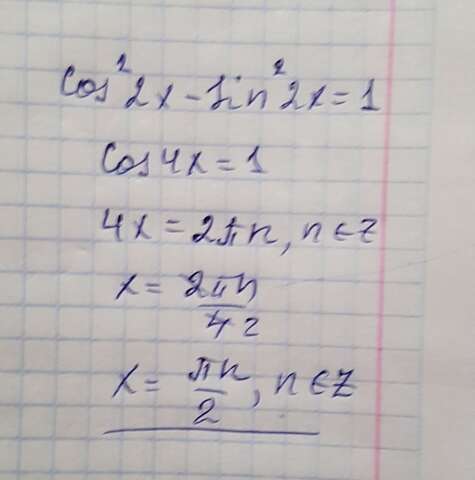 cos²2x - sin²2x = 1
cos4x = 1
4x = 2πn, n∈Z
x = 2πn/4 2
x = πn/2, n∈Z